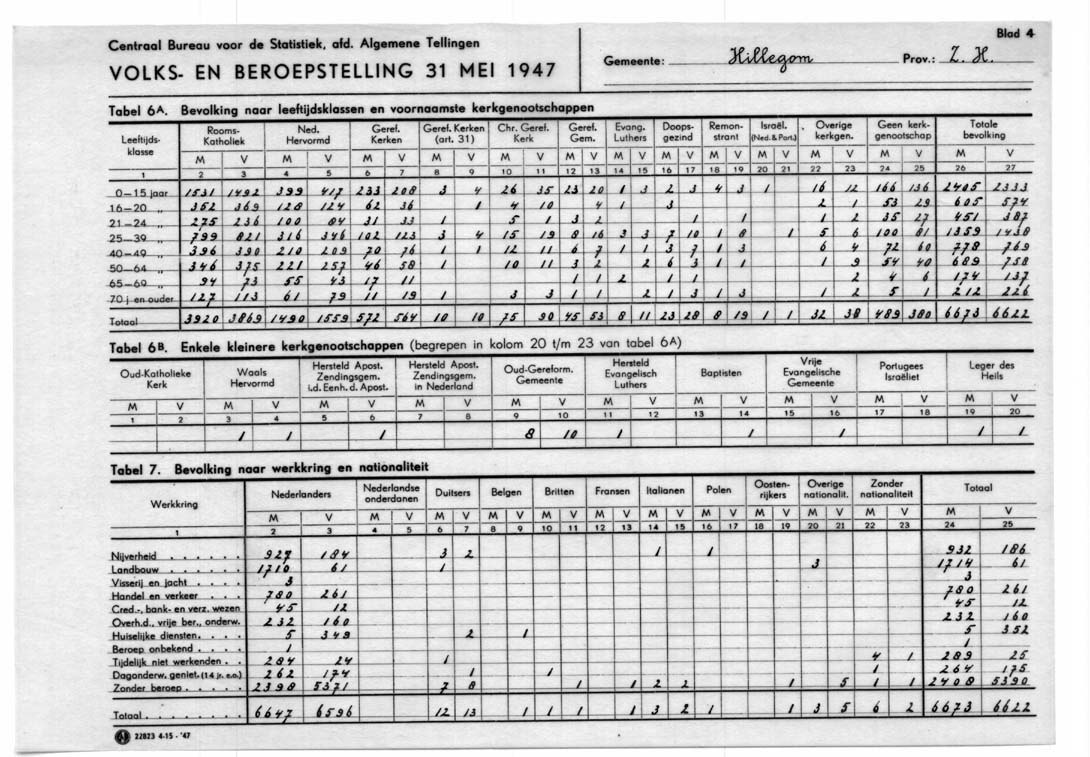 Blad 4
Centraal Bureau voor de Statistiek, afd. Algemene Tellingen
VOLKS- EN BEROEPSTELLING 31 MEI 1947
Gemeente: Hillegom Prov.: Z. H.
Tabel 6A. Bevolking naar leeftijdsklassen en voornaamste kerkgenootschappen
Leeftijds-klasse Rooms-Katholiek Ned. Hervormd Geref. Kerken Geref. Kerken (art. 31) Chr. Geref. Kerk Geref. Gem. Evang. Luthers Doops-gezind Remon-strant Israël. (Ned. & Port.) Overige kerkgen. Geen kerk-genootschap Totale bevolking
M V M V M V M V M V M V M V M V M V M V M V M V M V
1 2 3 4 5 6 7 8 9 10 11 12 13 14 15 16 17 18 19 20 21 22 23 24 25 26 27
0-15 jaar 1531 1492 399 417 233 208 3 4 26 35 23 20 1 3 2 3 4 3 1 16 12 166 136 2405 2333
16-20 „ 352 369 128 124 62 36 1 4 10 4 1 3 2 1 53 29 605 574
21-24 „ 275 236 100 84 31 33 1 5 1 3 2 1 1 1 2 35 27 451 387
25-39 „ 799 821 316 346 102 123 3 4 15 19 8 16 3 3 7 10 1 8 1 5 6 100 81 1359 1438
40-49 „ 396 390 210 209 70 76 1 1 12 11 6 7 1 1 3 7 1 3 6 4 72 60 778 769
50-64 „ 346 375 221 257 46 58 1 10 11 3 2 2 6 3 1 1 1 9 54 40 689 758
65-69 „ 94 73 55 43 17 11 1 1 1 2 1 2 4 6 174 137
70 j. en ouder 127 113 61 79 11 19 1 3 3 1 1 2 1 3 1 3 1 2 5 1 212 226
Totaal 3920 3869 1490 1559 572 564 10 10 75 90 45 53 8 11 23 28 8 19 1 1 32 38 489 380 6673 6622
Tabel 6B. Enkele kleinere kerkgenootschappen (begrepen in kolom 20 t/m 23 van tabel 6A)
Oud-Katholieke Kerk Waals Hervormd Hersteld Apost. Zendingsgem. i.d. Eenh. d. Apost. Hersteld Apost. Zendingsgem. in Nederland Oud-Gereform. Gemeente Hersteld Evangelisch Luthers Baptisten Vrije Evangelische Gemeente Portugees Israëliet Leger des Heils
M V M V M V M V M V M V M V M V M V M V
1 2 3 4 5 6 7 8 9 10 11 12 13 14 15 16 17 18 19 20
1 1 1 8 10 1 1 1 1 1
Tabel 7. Bevolking naar werkkring en nationaliteit
Werkkring Nederlanders Nederlandse onderdanen Duitsers Belgen Britten Fransen Italianen Polen Oosten-rijkers Overige nationalit. Zonder nationaliteit Totaal
M V M V M V M V M V M V M V M V M V M V M V M V
1 2 3 4 5 6 7 8 9 10 11 12 13 14 15 16 17 18 19 20 21 22 23 24 25
Nijverheid . . . . . . 927 184 3 2 1 1 932 186
Landbouw . . . . . . 1710 61 1 3 1714 61
Visserij en jacht . . . . 3 3
Handel en verkeer . . . 780 261 780 261
Cred.-, bank- en verz. wezen 45 12 45 12
Overh.d., vrije ber., onderw. 232 160 232 160
Huiselijke diensten. . . . 5 349 2 1 5 352
Beroep onbekend . . . . 1 1
Tijdelijk niet werkenden . . 284 24 1 4 1 289 25
Dagonderw. geniet. (14 jr. e.o.) 262 174 1 1 1 264 175
Zonder beroep . . . . . 2398 5371 7 8 1 1 2 2 1 5 1 1 2408 5390
Totaal . . . . . . . . 6647 6596 12 13 1 1 1 1 3 2 1 1 3 5 6 2 6673 6622
22823 4-15 - '47